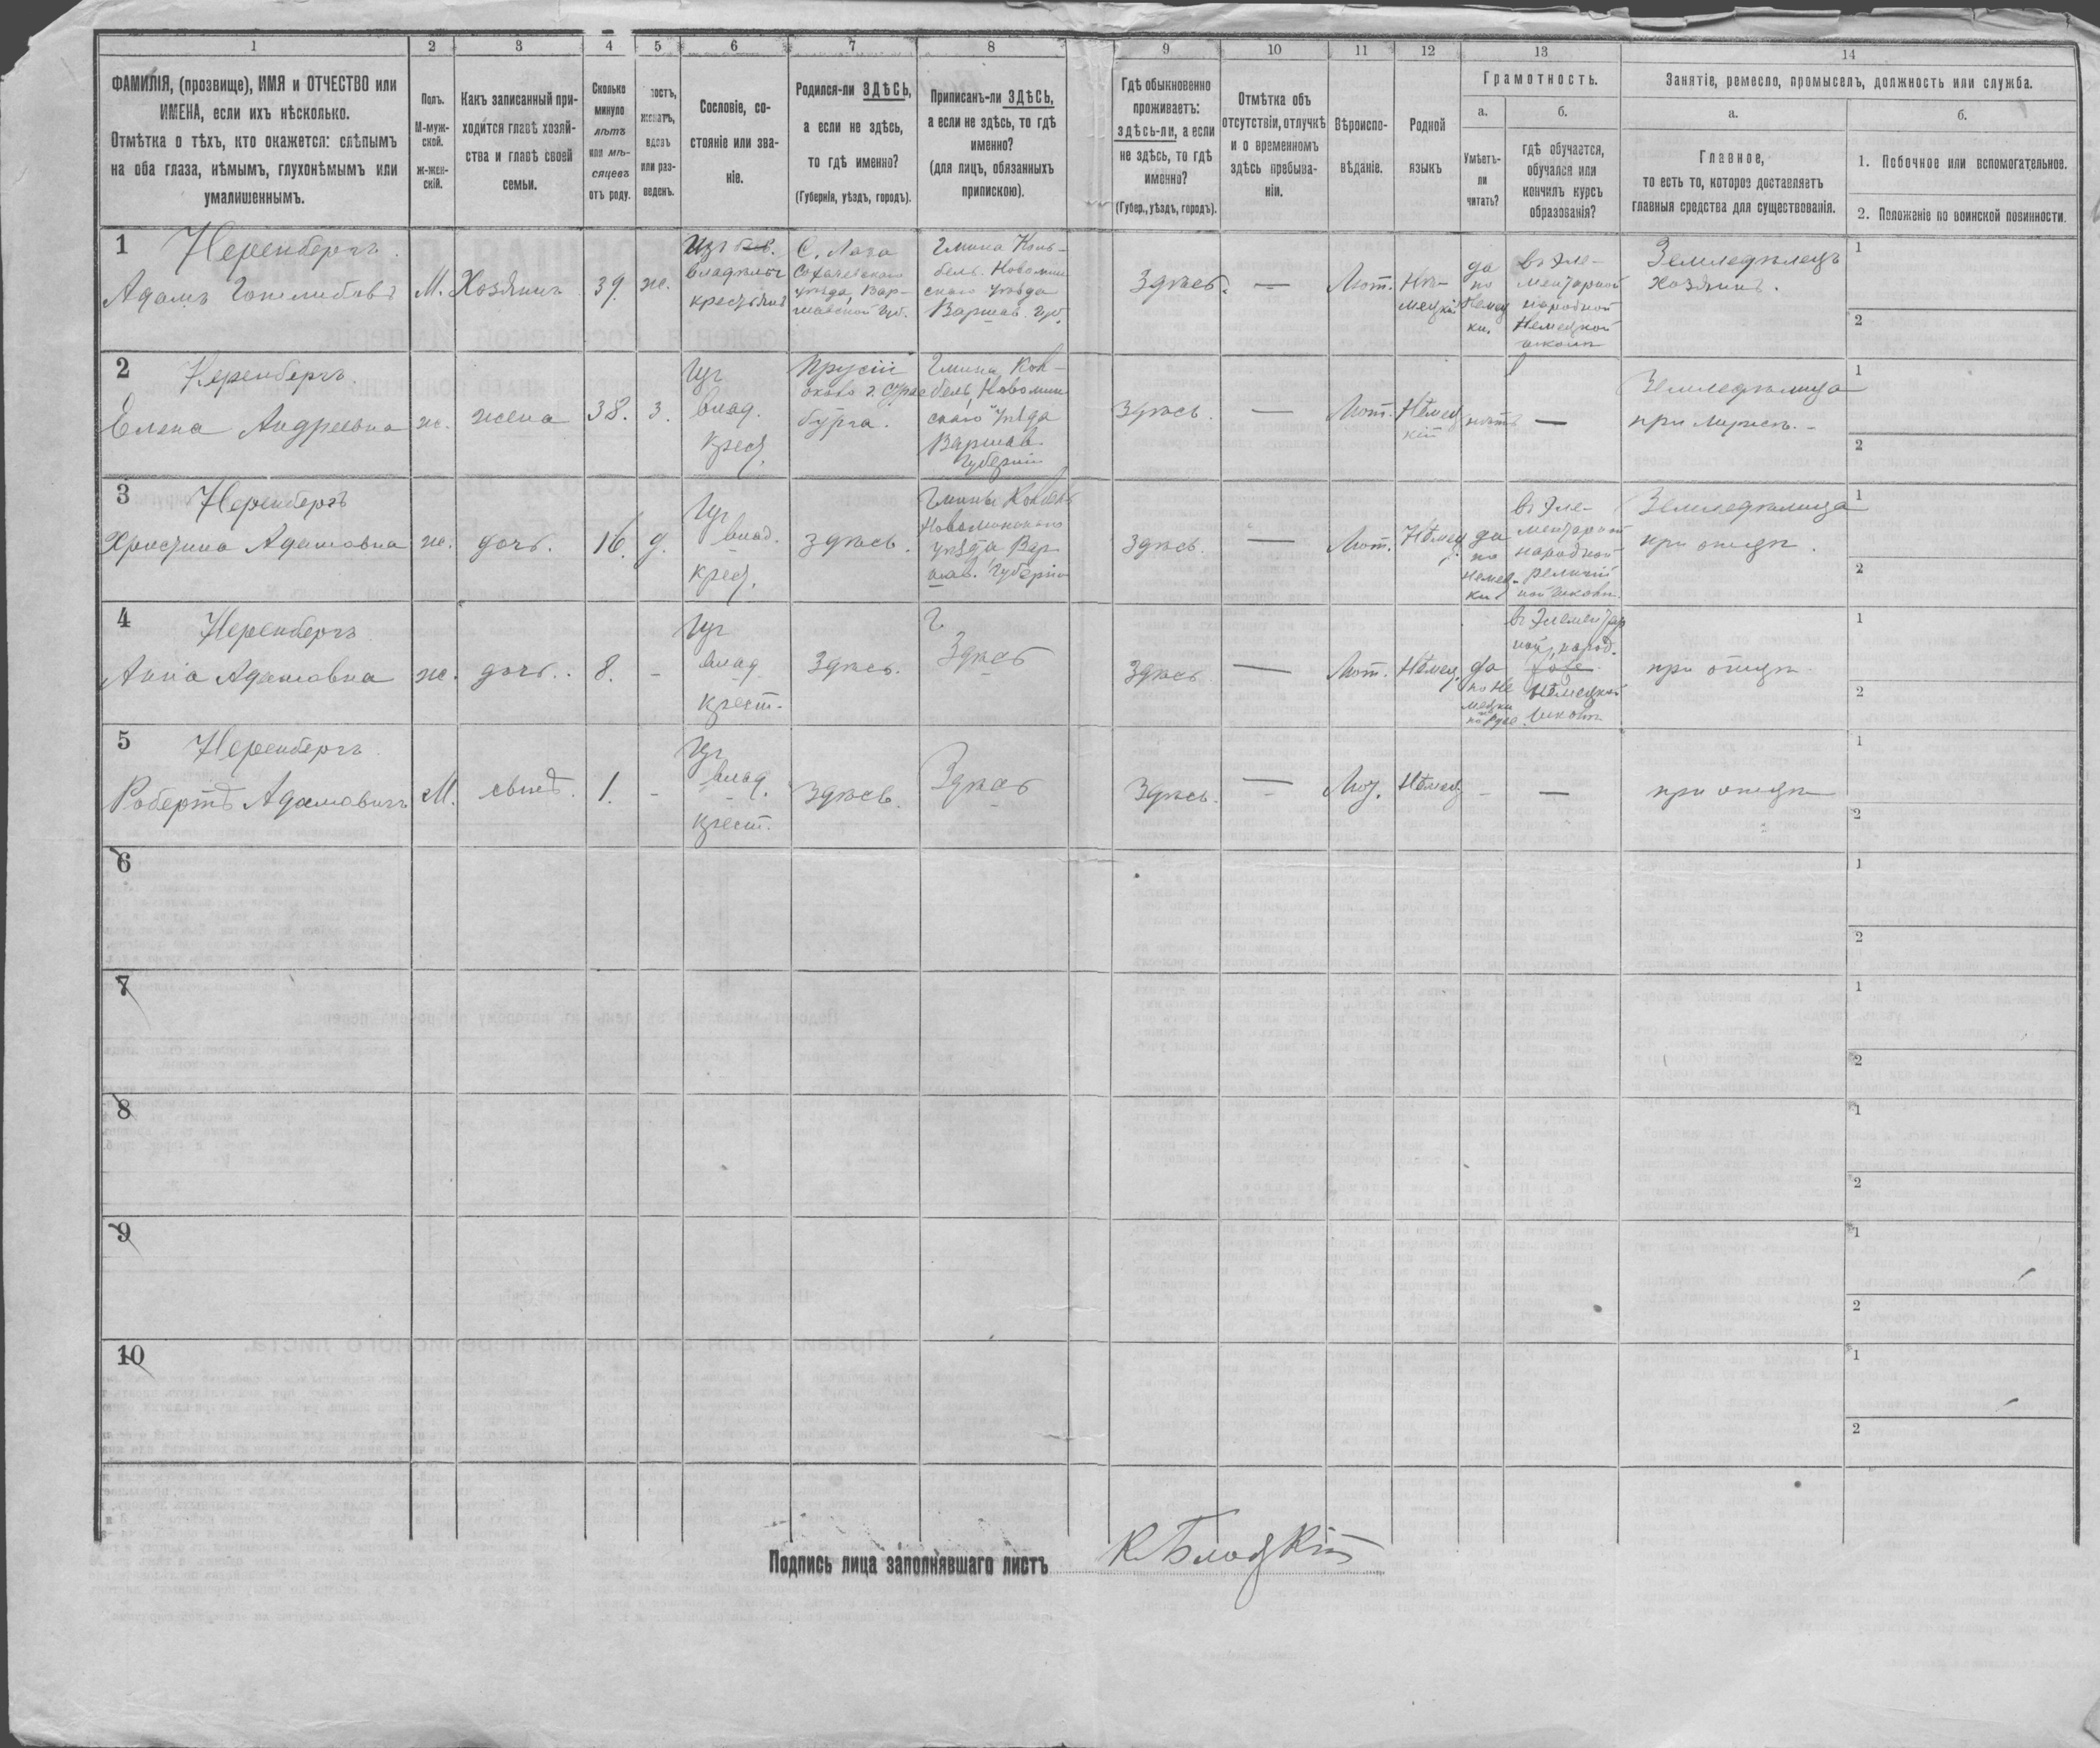 1 2 3 4 5 6 7 8 9 10 11 12 13 14
ФАМИЛІЯ, (прозвище), ИМЯ и ОТЧЕСТВО или
ИМЕНА, если ихъ нѣсколько.
Отмѣтка о тѣхъ, кто окажется: слѣпымъ
на оба глаза, нѣмымъ, глухонѣмымъ или
умалишеннымъ.
Полъ.
М-муж-
ской.
ж-жен-
скій.
Какъ записанный при-
ходится главѣ хозяй-
ства и главѣ своей
семьи.
Сколько
минуло
лѣтъ
или мѣ-
сяцевъ
отъ роду.
женатъ,
вдовъ
или раз-
веденъ.
Сословіе, со-
стояніе или зва-
ніе.
Родился-ли ЗДѢСЬ,
а если не здѣсь,
то гдѣ именно?
(Губернія, уѣздъ, городъ).
Приписанъ-ли ЗДѢСЬ,
а если не здѣсь, то гдѣ
именно?
(для лицъ, обязанныхъ
припискою).
Гдѣ обыкновенно
проживаетъ:
здѣсь-ли, а если
не здѣсь, то гдѣ
именно?
(Губер., уѣздъ, городъ).
Отмѣтка объ
отсутствіи, отлучкѣ
и о временномъ
здѣсь пребыва-
ніи.
Вѣроиспо-
вѣданіе.
Родной
языкъ
Грамотность.
а.
Умѣетъ-
ли
читать?
б.
гдѣ обучается,
обучался или
кончилъ курсъ
образованія?
Занятіе, ремесло, промыселъ, должность или служба.
а.
Главное,
то есть то, которое доставляетъ
главныя средства для существованія.
б.
1. Побочное или вспомогательное.
2. Положеніе по воинской повинности.
1 Неренбергъ
Адамъ Готлибовъ
М.
Хозяинъ
39
ж.
Изъ
крестьянъ
Сохачевскаго
уѣзда, Вар-
шавской губ.
Гмина Кол-
бель Новомин
скаго уѣзда
Варшав. губ.
Здѣсь.
—
Лют.
Нѣ-
мецкій
да
по
Немец
ки.
въ Эле-
ментарной
народной
Немецкой
школѣ
Земледѣлецъ
хозяинъ.
1
2
2 Неренбергъ
Елена Андреевна
ж.
жена
38.
з.
Изъ
влад.
крест.
Прусіи
около г.
бурга.
Гмина Кол-
бель, Новомин
скаго Уѣзда
Варшав.
Губерніи
Здѣсь.
—
Лют.
Нѣмец
кій
нѣтъ
—
Земледѣлица
при мужѣ. -
1
2
3 Неренбергъ
Христина Адамовна
ж.
дочь.
16.
д.
Изъ
влад.
крест.
Здѣсь.
Гмины Колбель
Новоминскаго
уѣзда Вар
шав. Губерніи
Здѣсь.
—
Лют.
Нѣмец.
да
по
немец-
ки
въ Эле-
ментарной
народной
школѣ
Земледѣлица
при отцѣ.
1
2
4 Неренбергъ
Анна Адамовна
ж.
дочь.
8.
-
Изъ
влад
крест.
Здѣсь.
Г.
Здѣсь
Здѣсь
—
Лют.
Нѣмец.
да
по не
мецки
въ Элементар
ной, народ.
Нѣмецкой
школѣ
при отцѣ.
1
2
5 Неренбергъ
Робертъ Адамовичъ
М.
сынъ.
1.
-
Изъ
влад.
крест.
Здѣсь.
Здѣсь
Здѣсь.
—
Лют.
Нѣмец
-
—
при отцѣ
1
2
6
1
2
7
1
2
8
1
2
9
1
2
10
1
2
Подпись лица заполнявшаго листъ